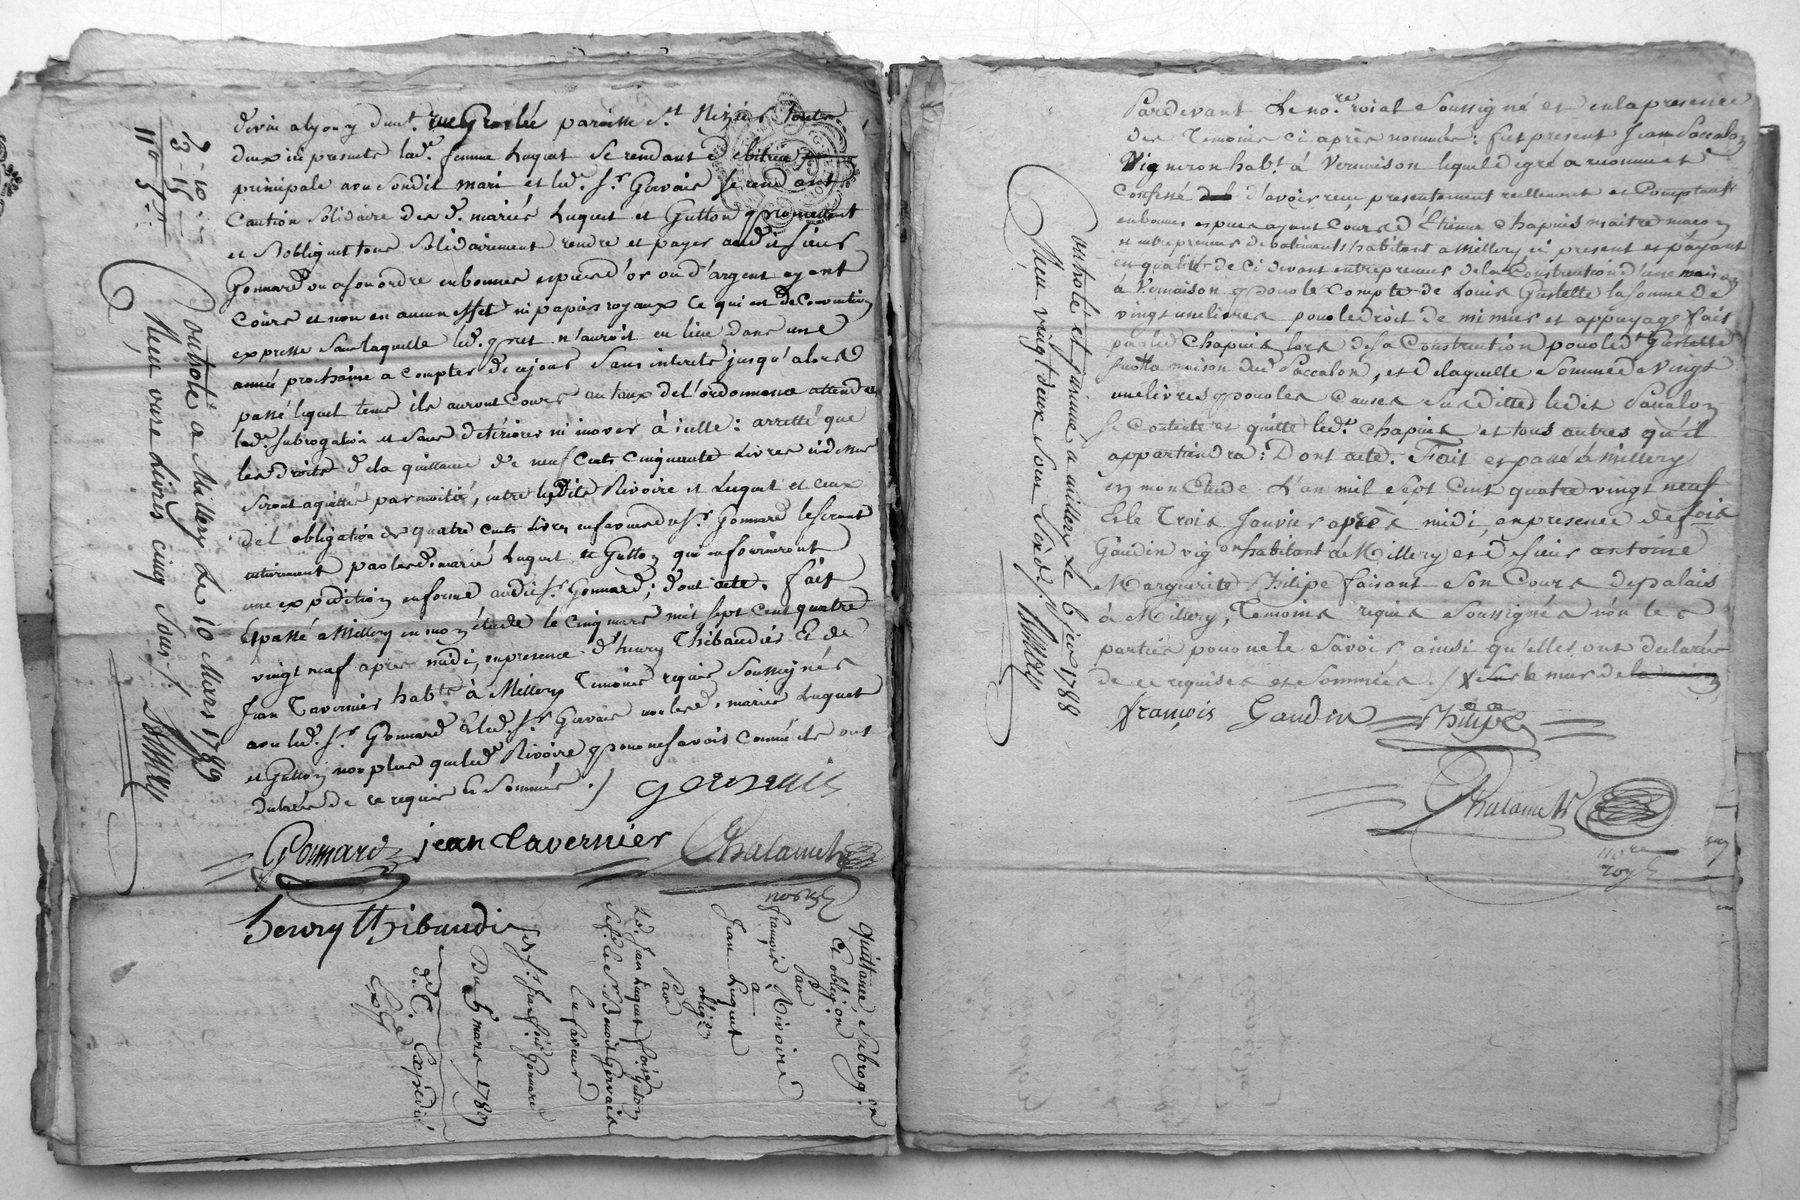 devin a lyon y dmt. rue Groslée paroisse St. Nizier toute
deux ici presents lade. femme Luquet se rendant debitrice
principale avu sondit mari et led. Sr. Gervais se rend ant
Caution Solidaire des d. mariés Luquet et Gutton promettent
et s'obligent tous solidairement rendre et payer audit sieur
Gonnard ou a son ordre en bonnes especes d'or ou d'argent ayant
cours et non en aucun effet ni papiers royaux ce qui est de Convention
expresse sans laquelle led. pret n'auroit eu lieu dans une
année prochaine a compter de ce jour sans interets jusqu'alors
passé lequel tems ils auront Cours au taux de l'ordonnance attendu
lad. subrogation et sans deteriorer ni inover à icelle : arretté que
les droits de la quittance de neuf Cents Cinquante Livres cidessus
seront aquittés par moitié, entre lesdits Rivoire et Luquet et ceux
de l'obligation de quatre cents Livres en faveur du Sr. Gonnard le seront
entierement par les d. mariés Luquet et Gutton qui en fourniront
une expedition en forme audit Sr. Gonnard ; dont acte. fait
et passé a Millery en mon étude le cinq mars mil sept cent quatre
vingt neuf après midi, en presence d'henry Thibaudier et de
Jean Tavernier habts. à Millery Temoins requis soussignés
avu led. Sr. Gonnard et led. Sr. Gervais non les d. mariés Luquet
et Gutton non plus que led. Rivoire pour ne savoir comme ils ont
declarés de ce requis et sommés ./.
gervais
Gonnard jean tavernier Chalamel
henry thibaudier
nore. roy.
7 - 10
3 - 15
11 5
Controlé a Millery Le 10 Mars 1789
Reçu onze Livres cinq sous
quittance, subrogon.
et obligon.
Par
françois Rivoire
a
Jean Luquet
oblig.
Par
Led. Jean Luquet
Sr. Benoit Gervais
En faveur
Sr. Gonnard
Du 5 mars 1789
Expédié
Pardevant Le nore. roial Soussigné et en la presence
des Temoins ci après nommés : fut present Jean Paccalon
Vigneron habt. à Vernaison lequel de gré a reconnu et
Confessé d'avoir reçu presentement reellement et Comptant
en bonnes especes ayant cours d'Étienne Chapuis maitre maçon
entrepreneur de batiments habitant a Millery ici present et payant
en qualité de ci devant entrepreneur de la Construction d'une maison
à Vernaison pour le compte de Louis Gustelle la somme de
vingt une livres pour le droit de mi mur et appuyage fait
par led Chapuis lors de sa Construction pour led Gustelle
sur la maison dud Paccalon, et de laquelle Somme de vingt
une livres pour les Causes susdittes ledit Paccalon
se Contente et quitte led. Chapuis et tous autres qu'il
appartiendra : Dont acte. Fait et passé a Millery
en mon Etude L'an mil sept Cent quatre vingt neuf
et le Trois Janvier après midi, en presence de fois
Gaudin vigon. habitant de Millery et de sieur antoine
Marguerite Philipe faisant son Cours de palais
à Millery, Temoins requis soussignés non les
parties pour ne le savoir ainsi qu'elles ont declarés
de ce requises et sommées . /. X sur le mur de la maison
françois Gaudin Philipe
Chalamel
nore
roy
Controlé et a millery Le 6 jer 1788
Reçu vingt deux sous six d.